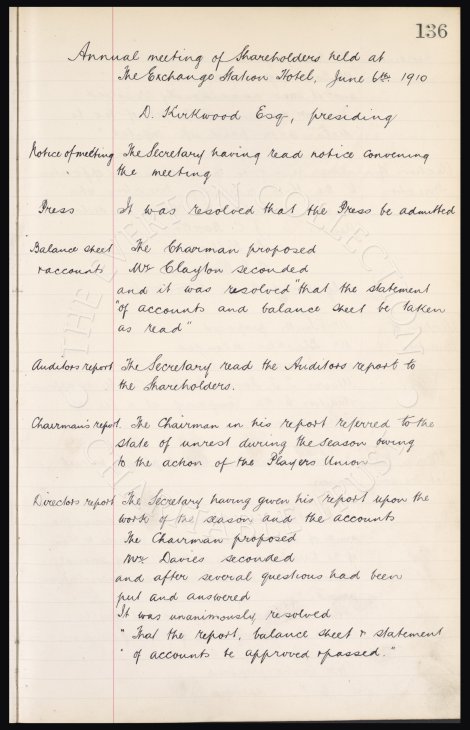 136
Annual meeting of Shareholders held at
The Exchange Station Hotel, June 6th 1910
D. Kirkwood Esq, presiding
Notice of meeting The Secretary having read notice convening
the meeting
Press It was resolved that the Press be admitted
Balance sheet The Chairman proposed
& accounts Mr Clayton seconded
and it was resolved "that the statement
"of accounts and balance sheet be taken
as read"
Auditors report The Secretary read the Auditors report to
the Shareholders.
Chairman's report. The Chairman in his report referred to the
state of unrest during the season owing
to the action of the Players Union
Directors report The Secretary having given his report upon the
work of the season and the accounts
The Chairman proposed
Mr Davies seconded
and after several questions had been
put and answered
It was unanimously resolved
"That the report, balance sheet & statement
" of accounts be approved & passed."
THE EVERTON COLLECTION
CHARITABLE TRUST